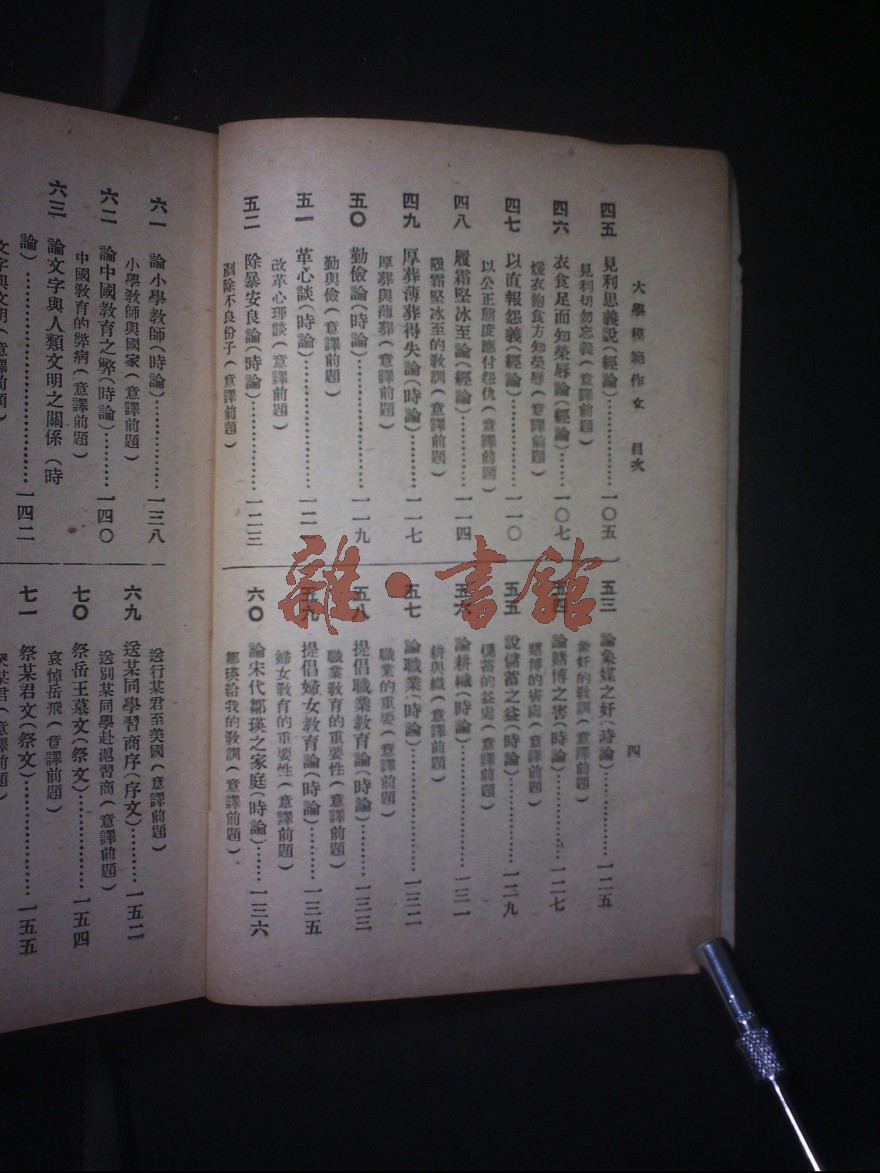 大學模範作文　目次
四五　見利思義說（經論）…………一〇五
見利切勿忘義（意譯前題）
四六　衣食足而知榮辱論（經論）……一〇七
煖衣飽食方知榮辱（意譯前題）
四七　以直報怨義（經論）…………一一〇
以公正態度應付怨仇（意譯前題）
四八　履霜堅冰至論（經論）…………一一四
履霜堅冰至的教訓（意譯前題）
四九　厚葬薄葬得失論（時論）……一一七
厚葬與薄葬（意譯前題）
五〇　勤儉論（時論）…………一一九
勤與儉（意譯前題）
五一　革心談（時論）…………一二一
改革心理談（意譯前題）
五二　除暴安良論（時論）…………一二三
剷除不良份子（意譯前題）
五三　論蟻媒之奸（時論）…………一二五
的教訓（意譯前題）
五四　論賭博之害（時論）…………一二七
賭博的害處（意譯前題）
五五　說儲蓄之益（時論）…………一二九
儲蓄的益處（意譯前題）
五六　論耕織（時論）…………一三一
耕與織（意譯前題）
五七　論職業（時論）…………一三二
職業的重要（意譯前題）
五八　提倡職業教育論（時論）……一三三
職業教育的重要性（意譯前題）
五九　提倡婦女教育論（時論）……一三五
婦女教育的重要性（意譯前題）
六〇　論宋代鄒瑛之家庭（時論）……一三六
鄒瑛給我的教訓（意譯前題）
四
六一　論小學教師（時論）…………一三八
小學教師與國家（意譯前題）
六二　論中國教育之弊（時論）……一四〇
中國教育的弊病（意譯前題）
六三　論文字與人類文明之關係（時
論）…………一四二
文字與文明（意譯前題）
送行某君至美國（意譯前題）
六九　送某同學習商序（序文）……一五二
送別某同學赴滬習商（意譯前題）
七〇　祭岳王墓文（祭文）…………一五四
哀悼岳飛（意譯前題）
七一　祭某君文（祭文）…………一五五
哭某君（意譯前題）
雜·書館